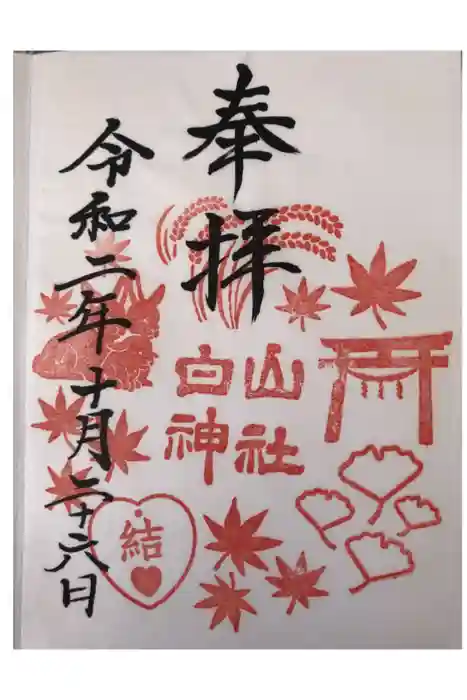 奉拝
白山
神社
結
令和二年十月二十六日